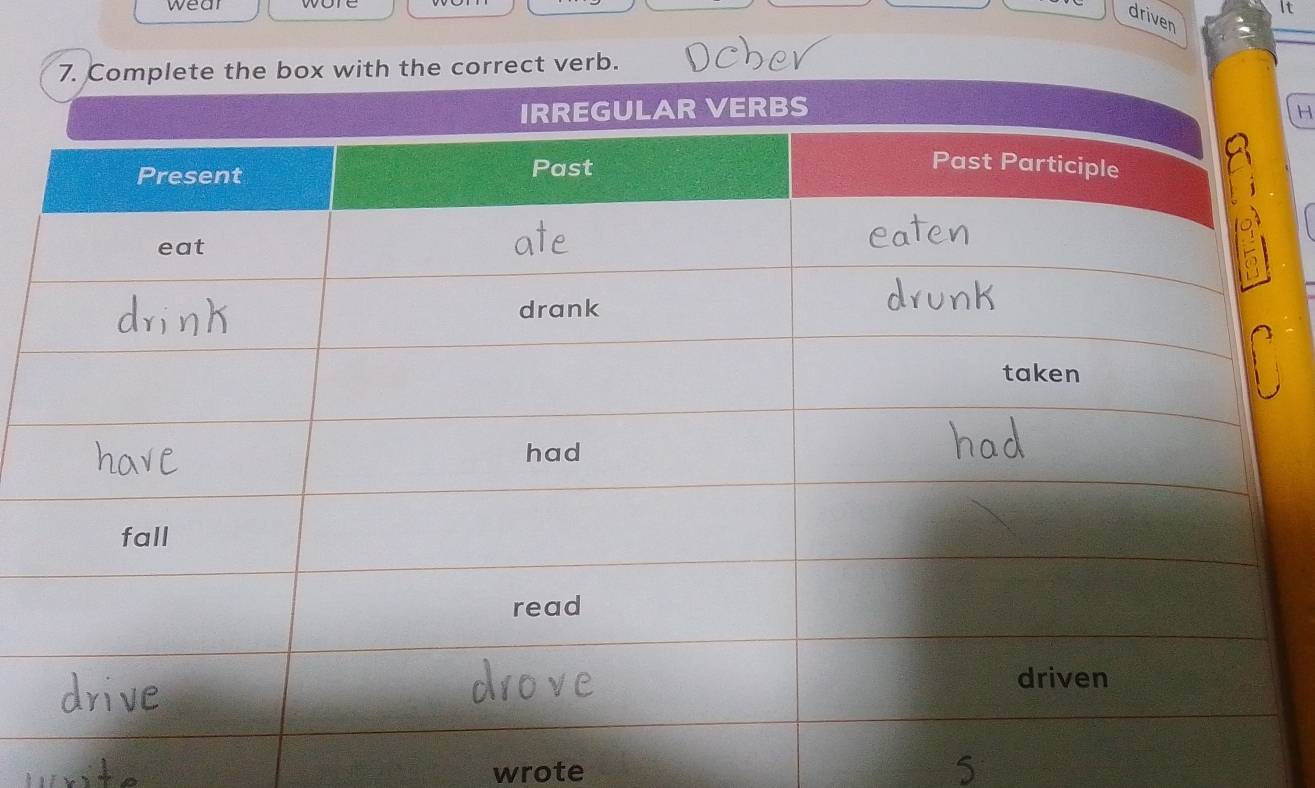 wear wore worn
driven
It
7. Complete the box with the correct verb. Dcber
H
IRREGULAR VERBS
Present Past Past Participle
eat ate eaten
drink drank drunk
taken
have had had
fall
read
drive drove driven
write wrote s